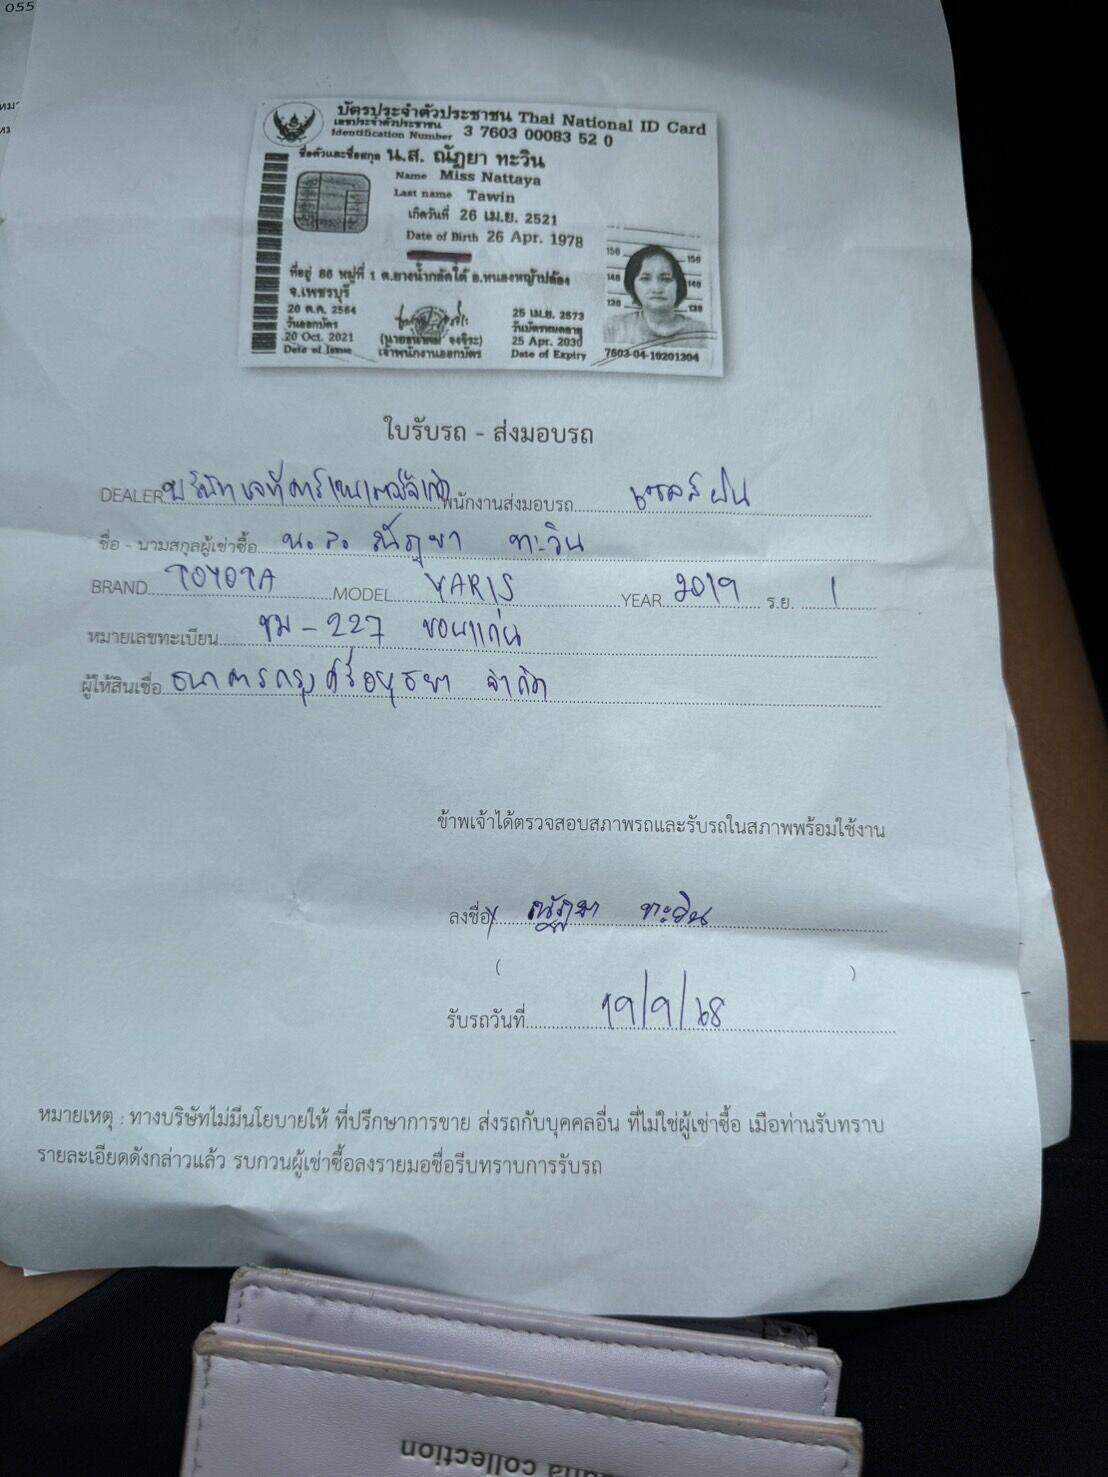 055
บัตรประจำตัวประชาชน Thai National ID Card
เลขประจำตัวประชาชน
Identification Number 3 7603 00083 52 0
ชื่อตัวและชื่อสกุล น.ส. ณัฏยา ทะวิน
Name Miss Nattaya
Last name Tawin
เกิดวันที่ 26 เม.ย. 2521
Date of Birth 26 Apr. 1978
ที่อยู่ 86 หมู่ที่ 1 ต.ยางน้ำกลัดใต้ อ.หนองหญ้าปล้อง
จ.เพชรบุรี
20 ต.ค. 2564
วันออกบัตร
20 Oct. 2021
Date of Issue
เจ้าพนักงานออกบัตร
25 เม.ย. 2573
วันบัตรหมดอายุ
25 Apr. 2030
Date of Expiry
150 150
140 140
130 130
7603-04-10201304
ใบรับรถ - ส่งมอบรถ
DEALER บริษัท เจที คาร์ พนักงานส่งมอบรถ
ชื่อ - นามสกุลผู้เช่าซื้อ น.ส. ณัฏยา ทะวิน
BRAND TOYOTA MODEL YARIS YEAR 2019 ร.ย. 1
หมายเลขทะเบียน ขม-227 ขอนแก่น
ผู้ให้สินเชื่อ ธนาคารกรุงศรีอยุธยา จำกัด
ข้าพเจ้าได้ตรวจสอบสภาพรถและรับรถในสภาพพร้อมใช้งาน
ลงชื่อ ณัฏยา ทะวิน
( )
รับรถวันที่ 19/9/68
หมายเหตุ : ทางบริษัทไม่มีนโยบายให้ ที่ปรึกษาการขาย ส่งรถกับบุคคลอื่น ที่ไม่ใช่ผู้เช่าซื้อ เมื่อท่านรับทราบ
รายละเอียดดังกล่าวแล้ว รบกวนผู้เช่าซื้อลงรายมอชื่อรีบทราบการรับรถ
collection